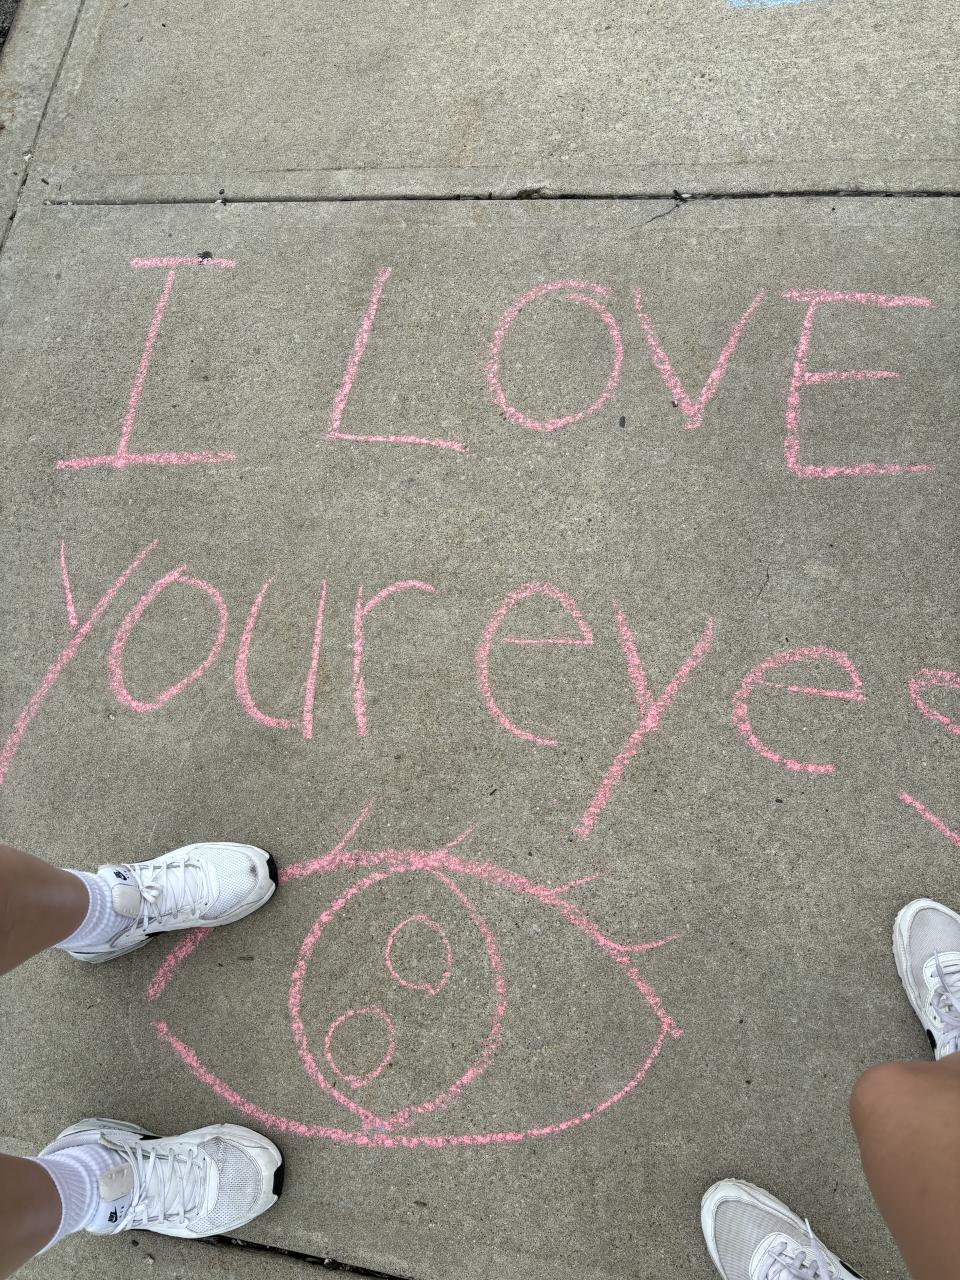 I LOVE
your eyes